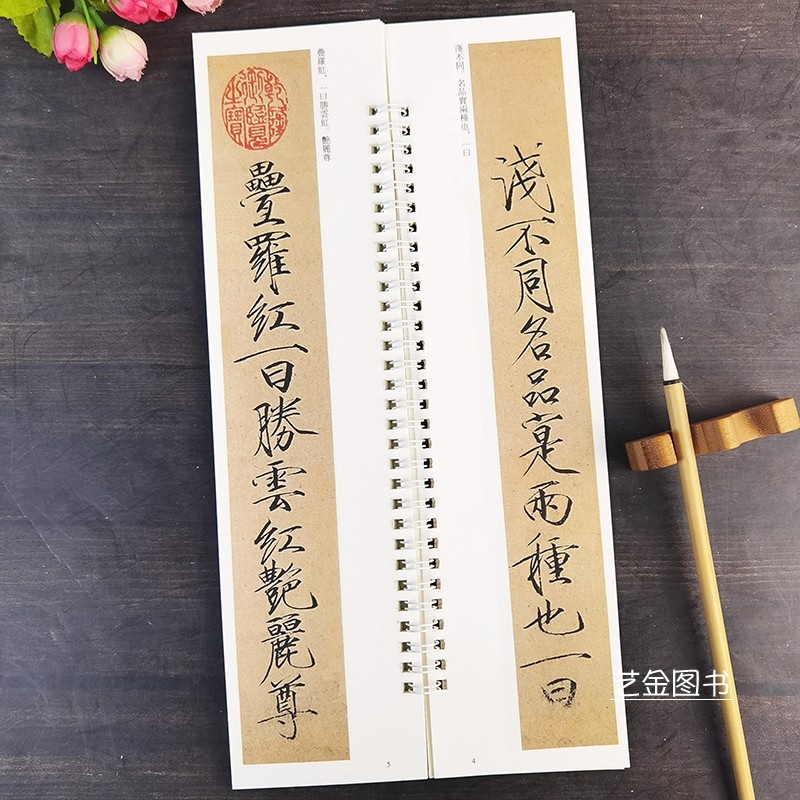 淺不同。名品實兩種也,一曰
淺不同名品寔兩種也一曰
4
疊羅紅,一曰勝雲紅。艷麗尊
乾隆御覽之寶
疊羅紅一曰勝雲紅艷麗尊
5
艺金图书